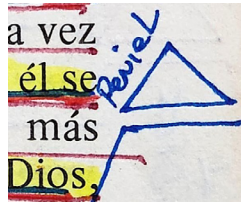 a vez
él se
más
Dios,
Peniel